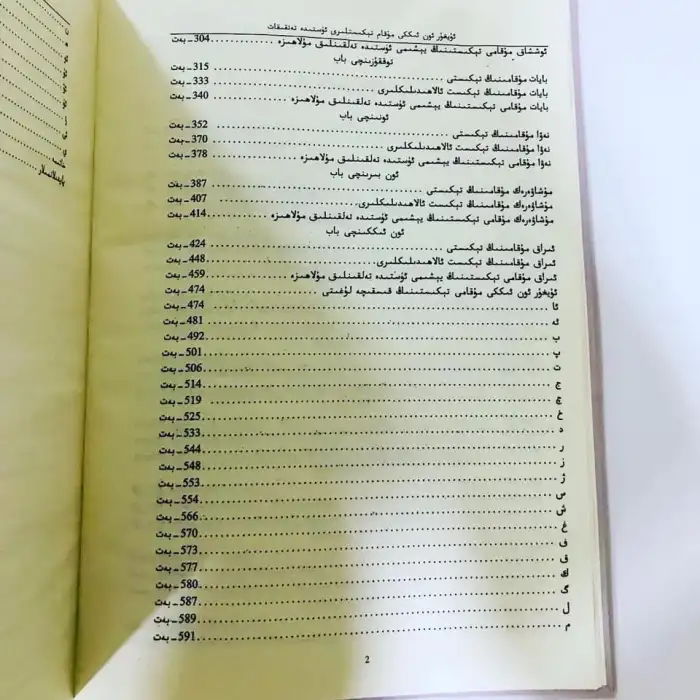 ئۇيغۇر ئون ئىككى مۇقام تېكىستلىرى ئۈستىدە تەتقىقات
ئوششاق مۇقامى تېكىستىنىڭ يېشىمى ئۈستىدە تەلقىنلىق مۇلاھىزە............304ـبەت
توققۇزىنچى باب
بايات مۇقامىنىڭ تېكىستى............315ـبەت
بايات مۇقامىنىڭ تېكىست ئالاھىدىلىكلىرى............333ـبەت
بايات مۇقامى تېكىستىنىڭ يېشىمى ئۈستىدە تەلقىنلىق مۇلاھىزە............340ـبەت
ئونىنچى باب
نەۋا مۇقامىنىڭ تېكىستى............352ـبەت
نەۋا مۇقامىنىڭ تېكىست ئالاھىدىلىكلىرى............370ـبەت
نەۋا مۇقامى تېكىستىنىڭ يېشىمى ئۈستىدە تەلقىنلىق مۇلاھىزە............378ـبەت
ئون بىرىنچى باب
مۇشاۋەرەك مۇقامىنىڭ تېكىستى............387ـبەت
مۇشاۋەرەك مۇقامىنىڭ تېكىست ئالاھىدىلىكلىرى............407ـبەت
مۇشاۋەرەك مۇقامى تېكىستىنىڭ يېشىمى ئۈستىدە تەلقىنلىق مۇلاھىزە............414ـبەت
ئون ئىككىنچى باب
ئىراق مۇقامىنىڭ تېكىستى............424ـبەت
ئىراق مۇقامىنىڭ تېكىست ئالاھىدىلىكلىرى............448ـبەت
ئىراق مۇقامى تېكىستىنىڭ يېشىمى ئۈستىدە تەلقىنلىق مۇلاھىزە............459ـبەت
ئۇيغۇر ئون ئىككى مۇقامى تېكىستىنىڭ قىسقىچە لۇغىتى............474ـبەت
ئا............474ـبەت
ئە............481ـبەت
ب............492ـبەت
پ............501ـبەت
ت............506ـبەت
ج............514ـبەت
چ............519ـبەت
خ............525ـبەت
د............533ـبەت
ر............544ـبەت
ز............548ـبەت
ژ............553ـبەت
س............554ـبەت
ش............566ـبەت
غ............570ـبەت
ف............573ـبەت
ق............577ـبەت
ك............580ـبەت
گ............587ـبەت
ل............589ـبەت
م............591ـبەت
2